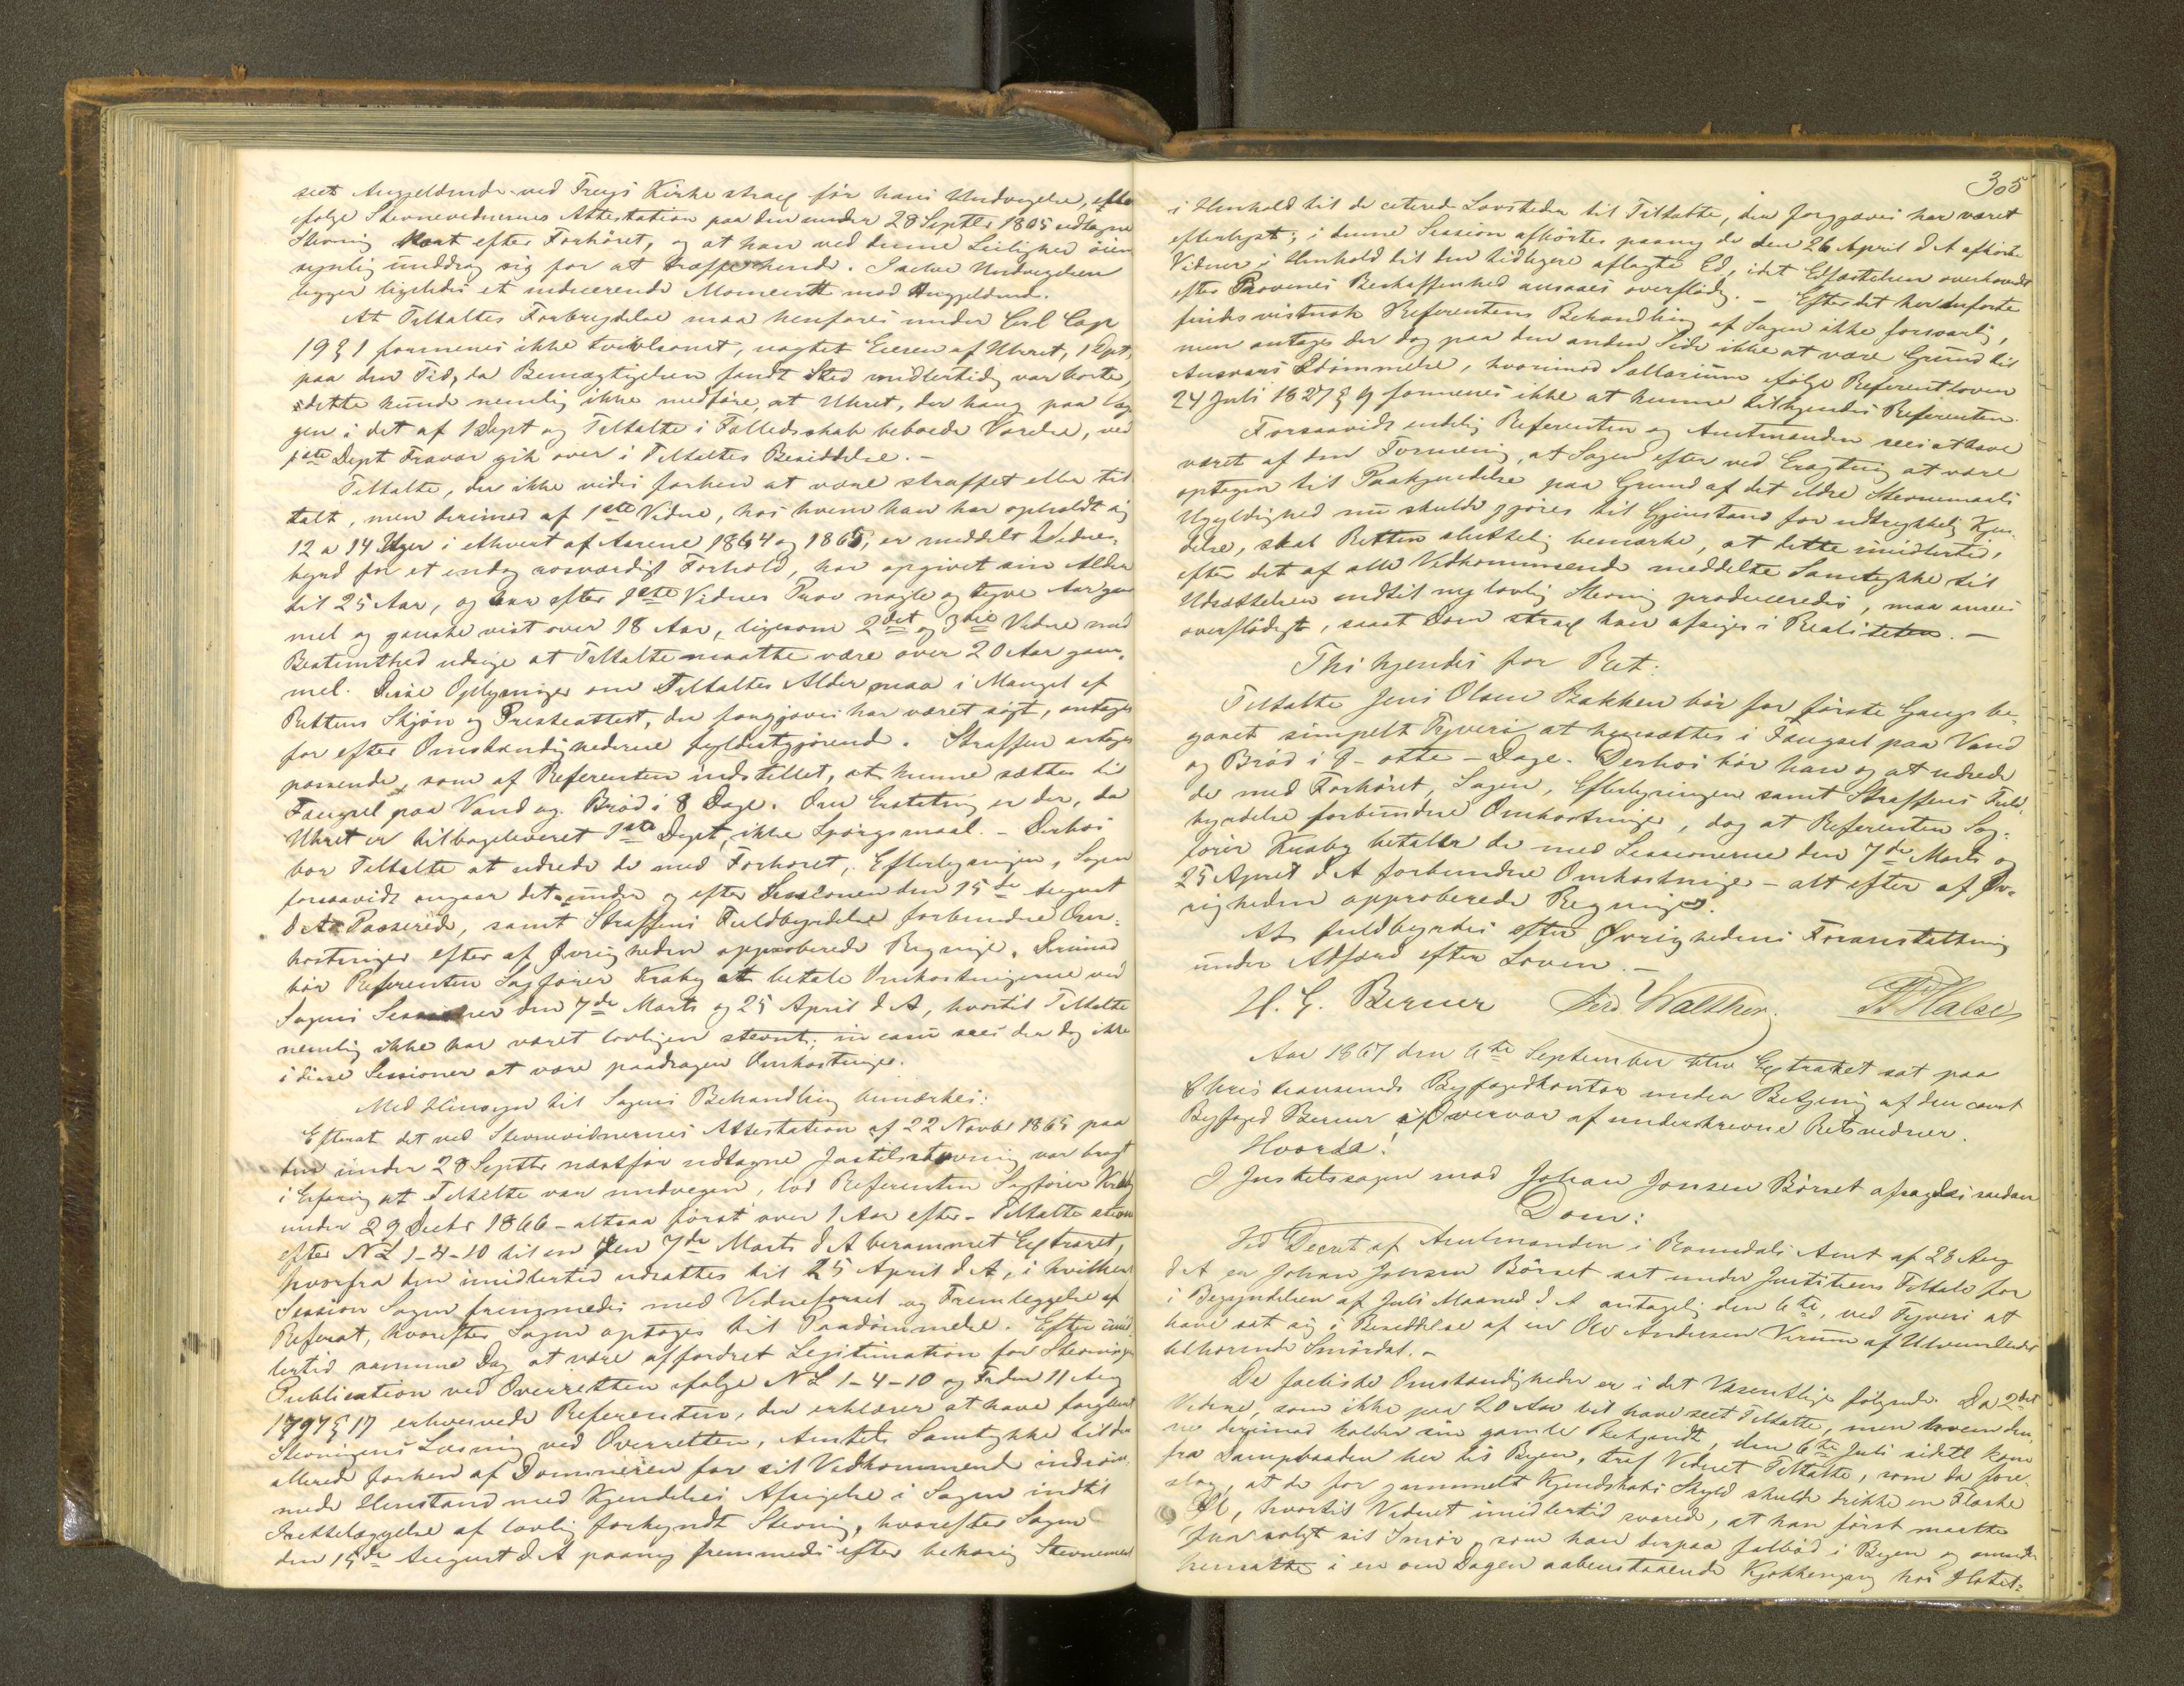 seet Angjeldende ved Freys Kirke strax før hans Undvigelse, efter
ifølge Stevnevidnernes Attestation paa den under 28 Septbr 1865 udtagne
Stevning kort efter Forhøret, og at han ved denne Leilighed øien
synlig unddrog sig for at træffe hende. I selve Undvigelsen
ligger ligeledes et inducerende Moment mod Angjeldende.
At Tiltaltes Forbrydelse maa henføres under Crl Cap
19 § 1 formenes ikke tvivlsomt, uagtet Eieren af Uhret, 1 Dpt,
paa den Tid, da Bemægtigelsen fandt Sted midlertidig var borte,
dette kunde nemlig ikke medføre, at Uhret, der hang paa Væg
gen i det af 1 Dept og Tiltalte i Fælledsskab beboede Værelse, ved
1ste Dept Fravær gik over i Tiltaltes Besiddelse. –
Tiltalte, der ikke vides forhen at være straffet eller til
talt, men derimod af 1ste Vidne, hos hvem han har opholdt sig
12 a 14 Uger i ethvert af Aarene 1864 og 1865, er meddelt Vidnes,
byrd for et endog rosværdigt Forhold, har opgivet sin Alder
til 25 Aar, og var efter 1ste Vidnes Prov nogle og tyve Aar gam
mel og ganske vist over 18 Aar, ligesom 2det og 3die Vidne med
Bestemthed udsige at Tiltalte maatte være over 20 Aar gam,
mel. Disse Oplysninger om Tiltaltes Alder maa i Mangel af
Rettens Skjøn og Presteattest, der forgjæves har været søgt, antages
for efter Omstændighederne fyldestgjørende. Straffen antages
passende, som af Referenten indstillet, at kunne sættes til
Fængsel paa Vand og Brød i 8 Dage. Om Erstatning er der, da
Uhret er tilbageleveret 1ste Dept, ikke Spørgsmaal. – Derhos
bør Tiltalte at udrede de med Forhøret, Efterlysningen, Sagen
forsaavidt angaar det under og efter Sessionen den 15de August
d A Passerede, samt Straffens Fuldbyrdelse forbundne Om-
kostninger efter af Øvrigheden approberede Regninger. Derimod
bør Referenten Sagfører Knaby at betale Omkostningerne ved
Sagens Sessioner den 7de Marts og 25 April d A, hvortil Tiltalte
nemlig ikke har været lovligen stevnt; in casu sees der dog ikke
i disse Sessioner at være paadragen Omkostninger.
Med Hensyn til Sagens Behandling bemærkes:
Efterat det ved Stevnevidnernes Attestation af 22 Novbr 1865 paa
den under 28 Septbr næstfør udtagne Justitsstevning var bragt
i Erfaring at Tiltalte var undvegen, lod Referenten Sagfører Knaby
under 29 Decbr 1866 – altsaa først over 1 Aar efter – Tiltalte stevne
efter NL 1-4-10 til en den 7de Marts d A berammet Extraret,
hvorfra den imidlertid udsattes til 25 April d A, i hvilken
Session Sagen fremmedes med Vidneførsel og Fremleggelse af
Referat, hvorefter Sagen optoges til Paadømmelse. Efter imid
lertid samme Dag at være affordret Legitimation for Stevningens
Publication ved Overretten ifølge NL 1-4-10 og Frdn 11 Aug
1797 § 17 erhvervede Referenten, der erklærer at have forglemt
Stevningens Læsning ved Overretten, Amtets Samtykke til den
allerede forhen af Dommeren for sit Vedkommende indrøm-
mede Henstand med Kjendelses Afsigelse i Sagen indtil
Irettelæggelse af lovlig forkyndt Stevning, hvorefter Sagen
den 15de August d A paany fremmedes efter behørig Stevnemaal
305
i Henhold til de citerede Lovsteder til Tiltalte, der forgjæves har været
efterlyst; i denne Session afhørtes paany de den 26 April d A afhørte
Vidner i Henhold til den tidligere aflagte Ed, idet Edfæstelsen overhovedet
efter Provenes Beskaffenhed ansaaes overflødig. – Efter det her anførte
findes vistnok Referentens Behandling af Sagen ikke forsvarlig,
men antages der dog paa den anden Side ikke at være Grund til
Ansvars Idømmelse, hvorimod Sallarium ifølge Referentloven
24 Juli 1827 § 9 formenes ikke at kunne tilkjendes Referenten.
Forsaavidt endelig Referenten og Amtmanden sees at have
været af den Formening, at Sagen efter ved Eragtning at være
optagen til Paakjendelse paa Grund af det ældre Stevnemaals
Ugyldighed nu skulde gjøres til Gjenstand for udtrykkelig Kjen-
delse, skal Retten sluttelig bemærke, at dette imidlertid,
efter det af alle Vedkommende meddelte Samtykke til
Udsættelsen indtil ny lovlig Stevning produceredes, maa ansees
overflødigt, saaat Dom strax kan afsiges i Realiteten. –
Thi kjendes for Ret:
Tiltalte Jens Olsen Bakken bør for første Gangs be-
gaaet simpelt Tyveri at hensættes i Fængsel paa Vand
og Brød i 8 – otte – Dage. Derhos bør han og at udrede
de med Forhøret, Sagen, Efterlysningen samt Straffens Fuld-
byrdelse forbundne Omkostninger, dog at Referenten Sag-
fører Knaby betaler de med Sessionerne den 7de Marts og
25 April d A forbundne Omkostninger – alt efter af Øv-
righeden approberede Regninger.
At fuldbyrdes efter Øvrighedens Foranstaltning
under Adfærd efter Loven. –
H. G. Berner Ferd. Walther. Halse
Aar 1867 den 6te September blev Extraret sat paa
Christiansunds Byfogedkontor under Betjening af den const
Byfoged Berner i Overvær af underskrevne Retsvidner.
Hvorda!
I Justitssagen mod Johan Jonsen Børset afsagdes saadan
Dom:
Ved Decret af Amtmanden i Romsdals Amt af 28 Aug
d A er Johan Johnsen Børset sat under Justitiens Tiltale for
i Begyndelsen af Juli Maaned d A antagelig den 6te, ved Tyveri at
have sat sig i Besiddelse af en Ole Andersen Virum af Ulvundeidet
tilhørende Smørdal. –
De factiske Omstændigheder er i det Væsentlige følgende. Da 2det
Vidne, som ikke paa 20 Aar vil have seet Tiltalte, men hvem den-
ne derimod kalder sin gamle Bekjendt, den 6te Juli sidstl kom
fra Dampbaaden her til Byen, traf Vidnet Tiltalte, som da fore-
slog, at de for gammelt Kjendskabs Skyld skulde drikke en Flaske
Øl, hvortil Vidnet imidlertid svarede, at han først maatte
faa solgt sit Smør, som han derpaa falbød i Byen og
hensatte i en om Dagen aabenstaaende Kjøkkengang hos Hotel-